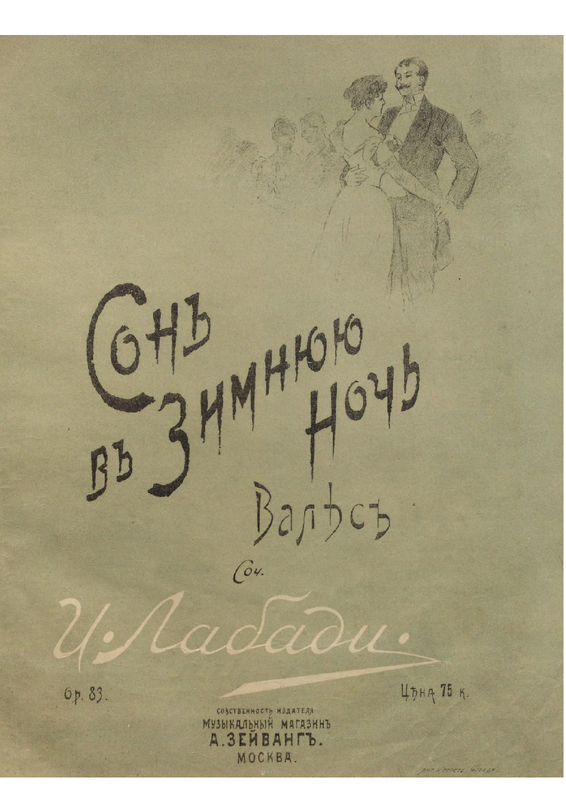 Сонъ
въ Зимнюю
Ночь
Вальсъ
Соч.
И. Лабади.
Op. 83.
Цѣна 75 к.
СОБСТВЕННОСТЬ ИЗДАТЕЛЯ
МУЗЫКАЛЬНЫЙ МАГАЗИНЪ
А. ЗЕЙВАНГЪ.
МОСКВА.